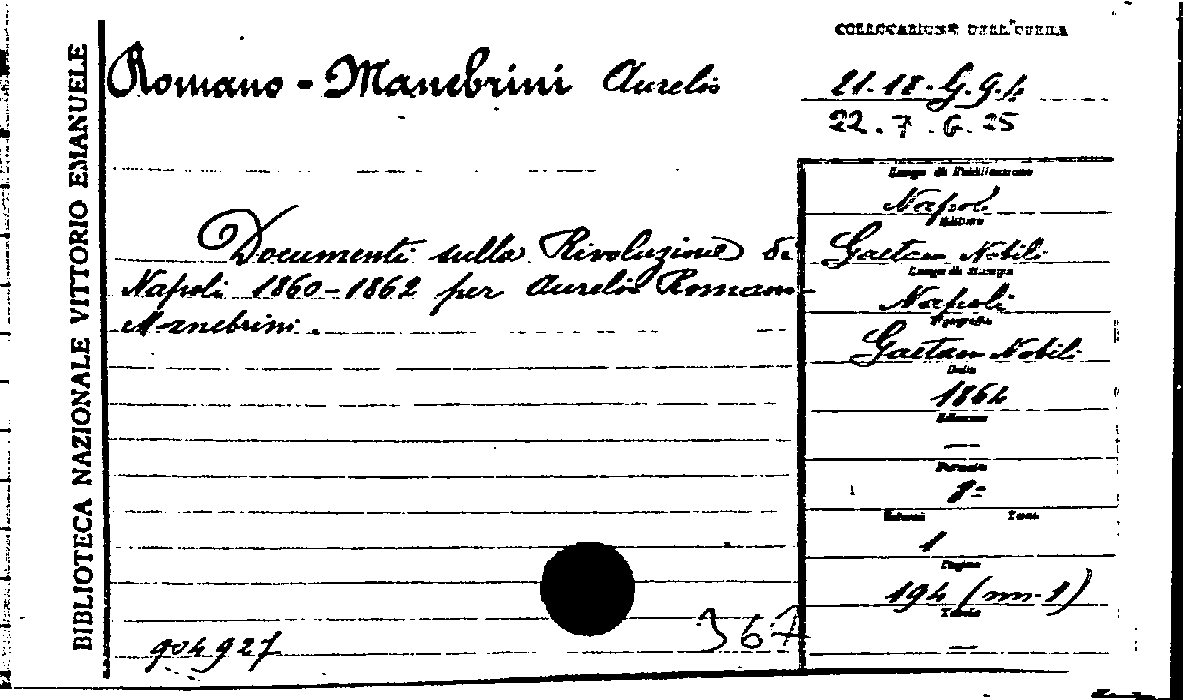 BIBLIOTECA NAZIONALE VITTORIO EMANUELE
COLLOCAZIONE DELL'OPERA
Romano-Manebrini Aurelio
21.18.G.94
22.7.G.25
Luogo di Pubblicazione
Napoli
Editore
Documenti sulla Rivoluzione di
Gaetano Nobili
Luogo di Stampa
Napoli 1860-1862 per Aurelio Romano-
Napoli
Tipografia
Manebrini.
Gaetano Nobili
Data
1864
Edizione
—
Formato
8º
Volumi Tomi
1
Pagine
194 (nn. 1)
Tavole
—
904927
367